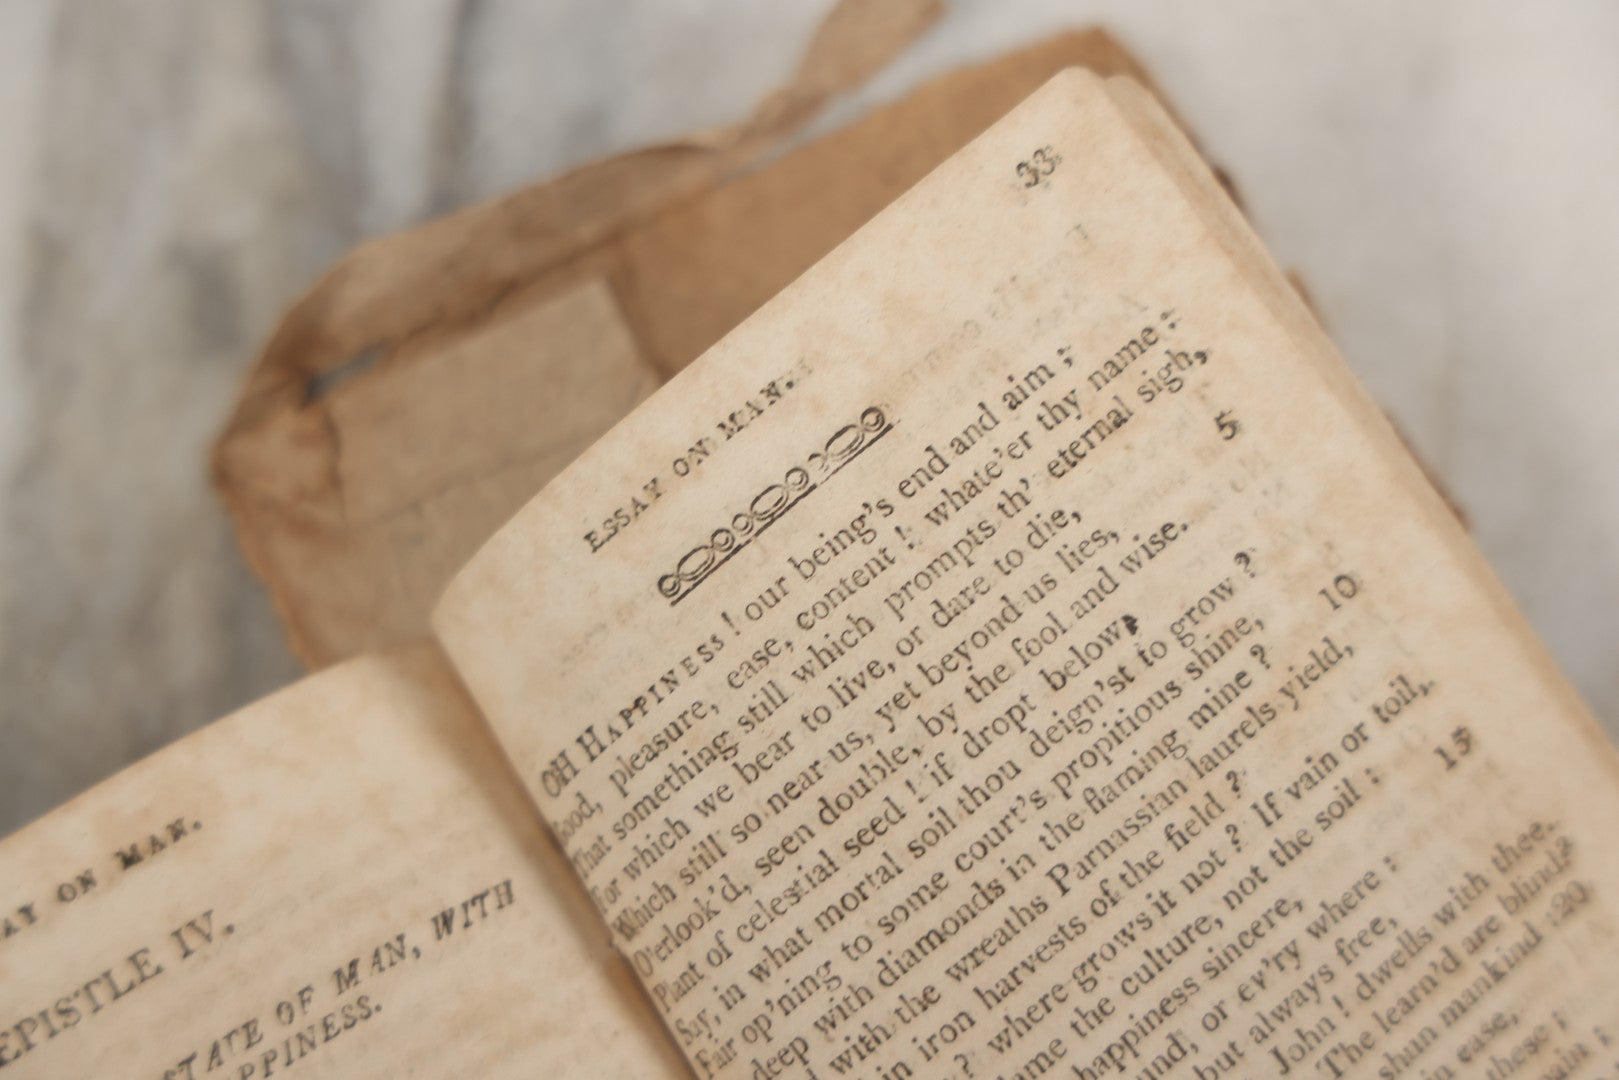 AY ON MAN.
EPISTLE IV.
STATE OF MAN, WITH
PPINESS.
33
ESSAY ON MAN.
OH HAPPINESS ! our being's end and aim ;
Good, pleasure, ease, content ! whate'er thy name :
That something still which prompts th' eternal sigh,
For which we bear to live, or dare to die,
Which still so near us, yet beyond us lies, 5
O'erlook'd, seen double, by the fool and wise.
Plant of celestial seed ! if dropt below,
Say, in what mortal soil thou deign'st to grow ?
Fair op'ning to some court's propitious shine,
deep with diamonds in the flaming mine ? 10
with the wreaths Parnassian laurels yield,
in iron harvests of the field ?
? where grows it not ? If vain or toil,
ame the culture, not the soil :
happiness sincere, 15
und, or ev'ry where :
but always free,
John ! dwells with thee.
The learn'd are blind :
shun mankind : 20
in ease,
these ;
ain ;